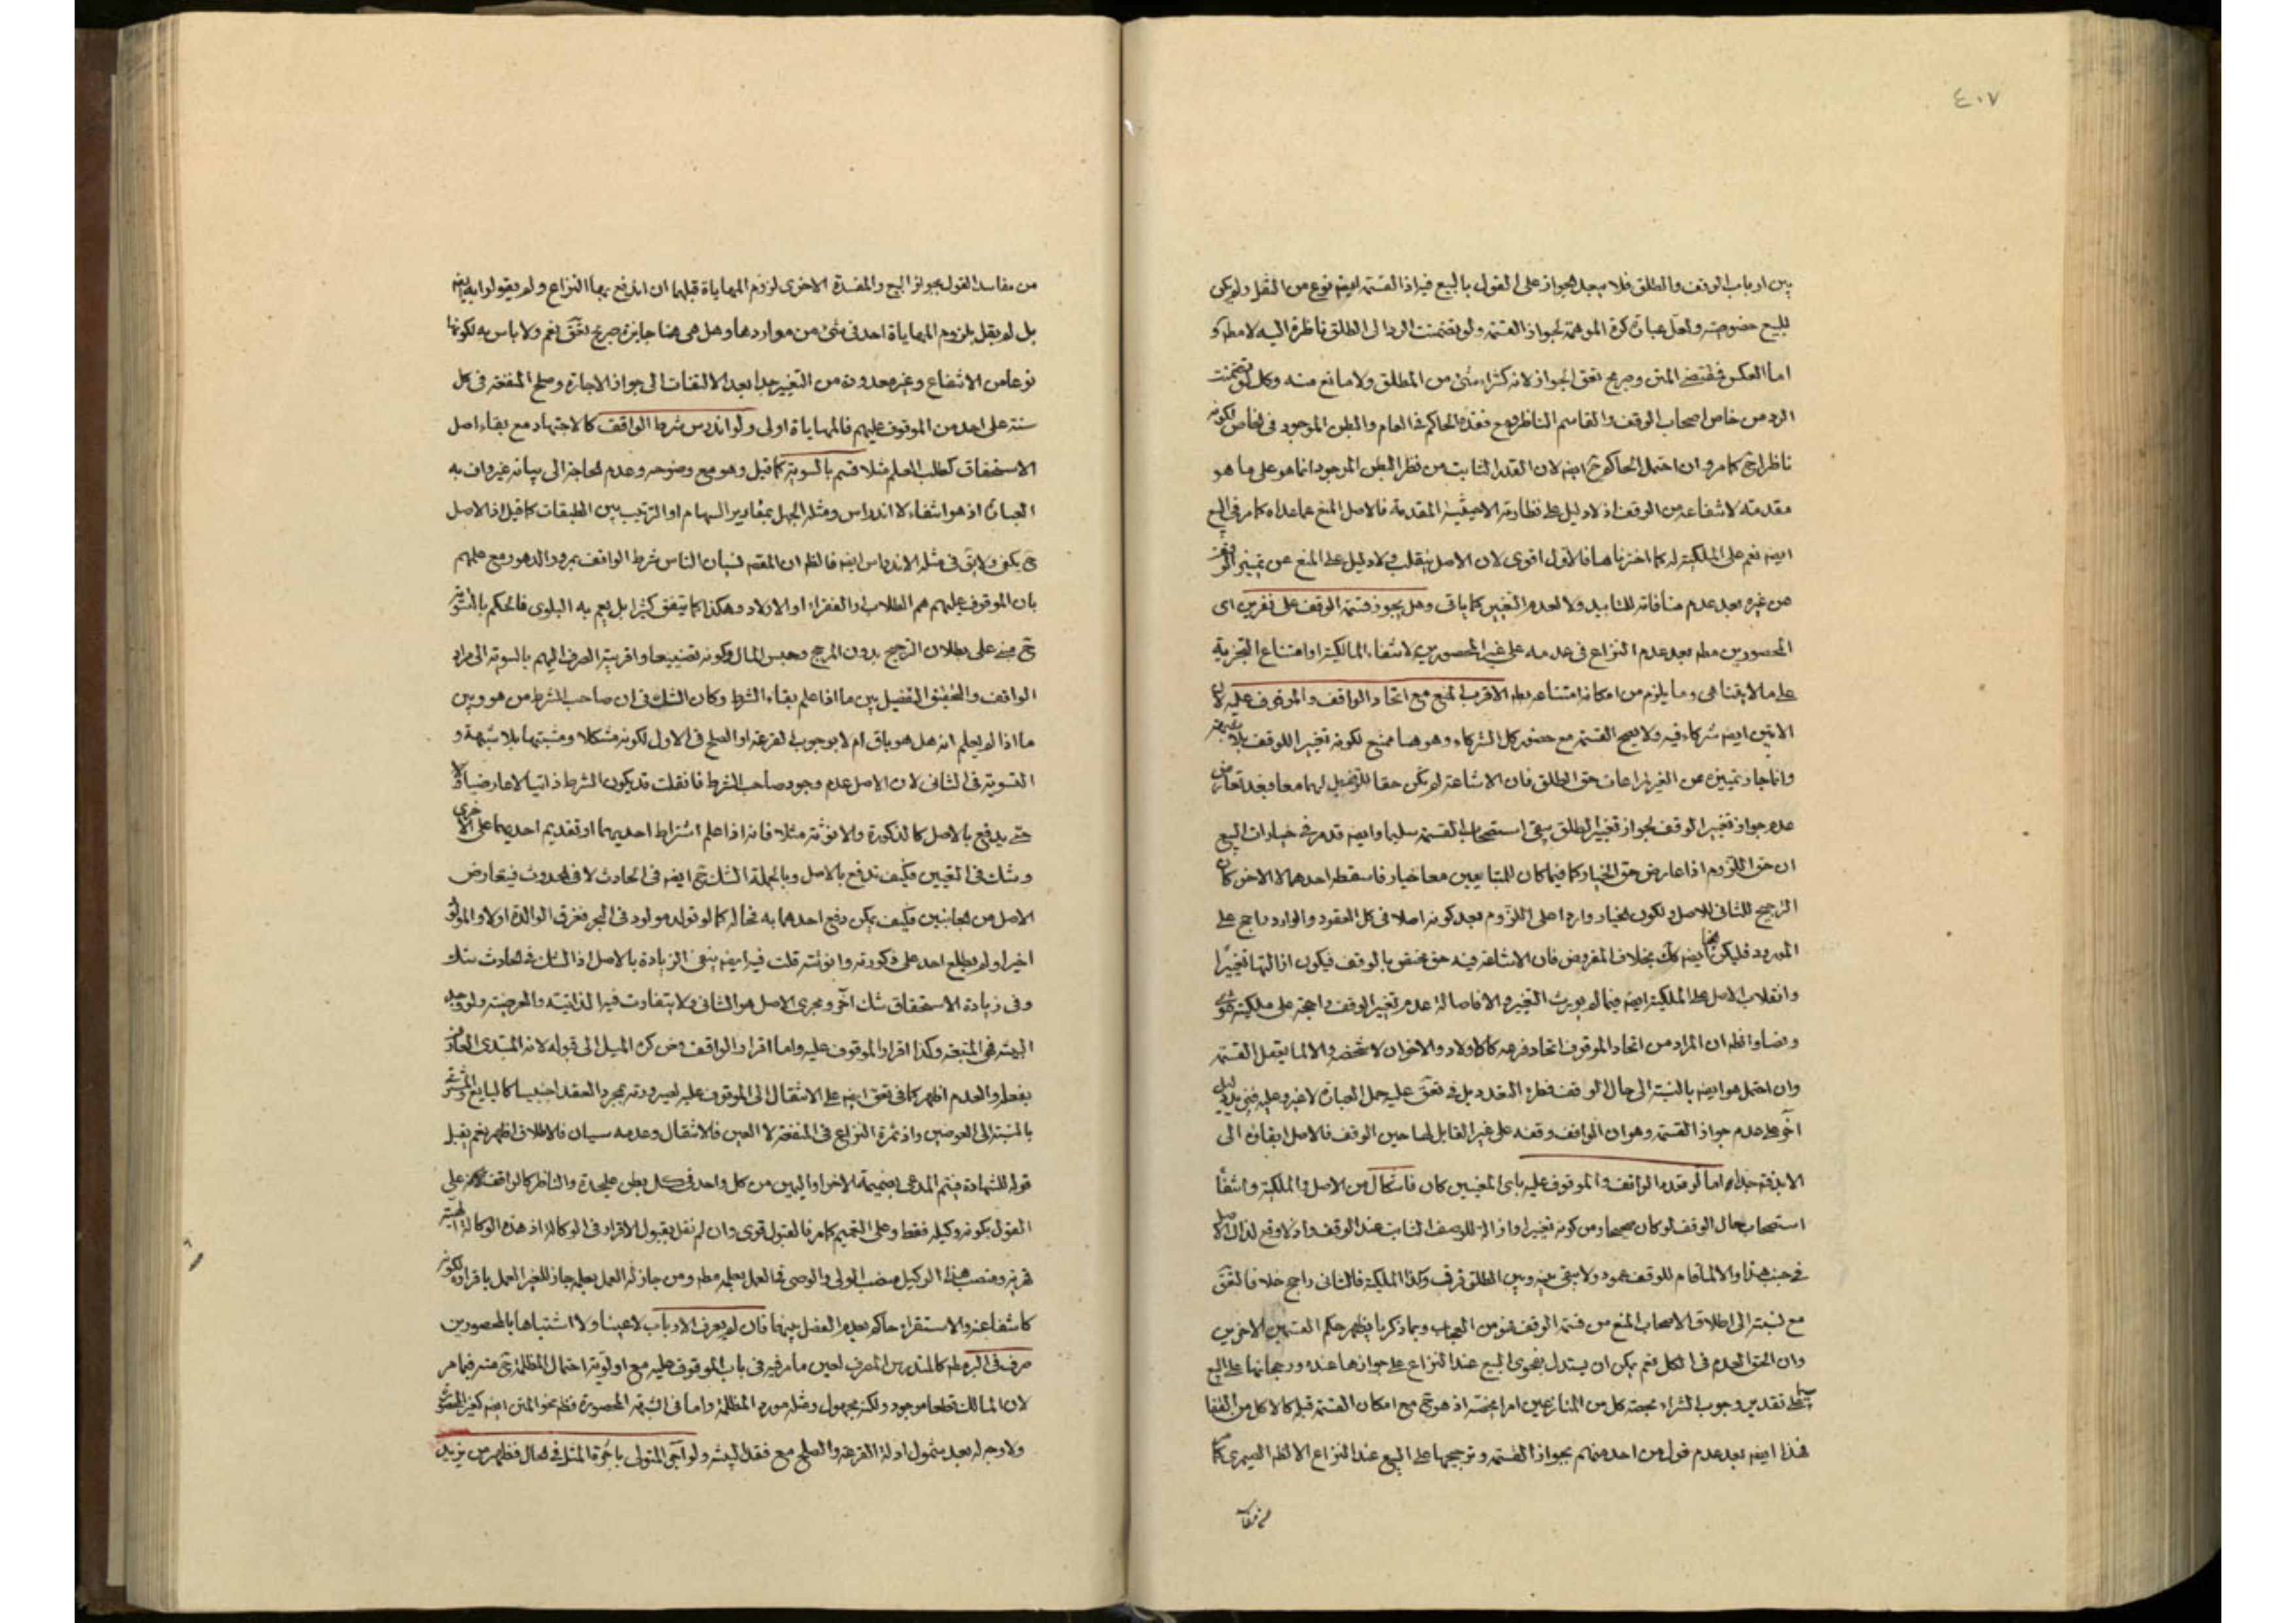 ٤٠٧
بين ارباب الوقف والطلق فلا يبعد الجواز على القول بالبيع فيه اذ القسمة ايضه نوع من النقل ولو يكن
للبيع خصوصيته ولعل عبارة كرة الموهمة لجواز القسمة ولو تضمنت الرد الى الطلق ناظرة اليه لا مطه و
اما العكس فمقتضى المتن وصريح تعق الجواز لانه كشراء شئ من المطلق ولا مانع منه وكل لو تضمنت
الرد من خاص اصحاب الوقف والقاسم الناظر ومع فقده الحاكم في العام والبطن الموجود في الخاص لكونه
ناظرا ح كما مر وان احتمل الحاكم ح ايضه لان القدر الثابت من نظر البطن الموجود انما هو على ما هو
مقدمته لانتفاعه من الوقف اذ لا دليل على نظارته الا حيثية المقدمة فالاصل المنع عما عداه كما مر في البيع
ايضه نعم على الملكية له كما اخترناها فالاول اقوى لان الاصل ينقلب ولا دليل على المنع عن تمييز الوقف
عن غيره بعد عدم منافاته للتابيد ولا لعدم التغيير كما ياتى وهل يجوز قسمة الوقف على نفرين اى
المحصورين مطه بعد عدم النزاع في عدمه على غير المحصورين لانتفاء المالكية او امتناع التجزية
على ما لا يتناهى وما يلزم من امكانه امتناعه بطه الاقرب المنع مع اتحاد الواقف والموقوف عليه لان
الاتين ايضه شركاء فيه ولا يصح القسمة مع حضور كل الشركاء وهو هنا ممتنع لكونه تغييرا للوقف
وانما جاز تمييزه عن الغير لمراعات حق الطلق فان الاشاعة لم تكن حقا للوقف بل لهما معا وبعد تعارض
عدم جواز تغيير الوقف لجواز تغيير الطلق يبقى استصحاب القسمة سليما وايضه قد مر في خيارات البيع
ان حق اللزوم اذا عارض حق الخيار كما فيما كان للمتبايعين معا خيار فاسقطه احدهما لا الاخر كان
الترجيح للثانى للاصل ولكون الخيار واردا على اللزوم بعد كونه اصلا في كل العقود والوارد راجح على
المورود فليكن هنا ايضه كك بخلاف المفروض فان الاشاعة فيه حق مختص بالوقف فيكون ازالتها تغييرا
وانقلاب الاصل على الملكية ايضه فيما لم يورث التغيير والا فاصالة عدم تغيير الوقف راجحة على ملكيته
وضا واظه ان المراد من اتحاد الموقوف اتحاد فرعه كالاولاد والاخوان لا شخصه والا لما يعقل القسمة
وان احتمل هو ايضه بالنسبة الى حال الوقف فطرء التعدد بل في تعق عليه حمل العبارة لا غير وعليه
اخر على عدم جواز القسمة وهو ان الواقف وقفه على غير القابل لها حين الوقف فالاصل ابقائه الى
الابد فته جدا اما لو تعدد الواقف والموقوف عليه باى المعنيين كان فاشكال من الاصل والملكية وانتفاء
استصحاب حال الوقف لو كان صحيحا ومن كونه تغييرا وازالة للوصف الثابت عند الوقف واولا وقع لذاك الاصل
في جنب هذا والا لما قام للوقف عمود ولا يبقى بينه وبين المطلق فرق وكذا الملكية فالثانى راجح خلافا لتعق
مع نسبته الى اطلاق الاصحاب المنع من قسمة الوقف فهو من العجاب وبما ذكرنا يظهر حكم القسمين الاخرين
وان الحق العدم في الكل نعم يمكن ان يستدل بفحوى البيع عند النزاع على جوازها عنده ورجحانها على البيع
سيما على تقدير وجوب الشراء بحصة كل من المتنازعين امرا يختصه اذ هو ح مع امكان القسمة قبله كالاكل من القفا
فهذا ايضه بعد عدم قول من احد منهم بجواز القسمة وترجيحها على البيع عند النزاع الا لظه السيورى كما
من مفاسد القول بجواز البيع والمفسدة الاخرى لزوم المهاياة قبلهما ان اندفع بها النزاع ولم يقولوا به ايضه
بل لم يقل بلزوم المهاياة احد في شئ من مواردها وهل هى هنا جايزة صريح تعق نعم ولا باس به لكونها
نوعا من الانتفاع وغير معدودة من التغيير جدا بعد الالتفات الى جواز الاجارة وصلح المنفعة في كل
سنة على احد من الموقوف عليهم فالمهاياة اولى ولو اندرس شرط الواقف كالاجتهاد مع بقاء اصل
الاستحقاق كطلب العلم مثلا قسم بالسوية كما قيل وهو مع وضوحه وعدم الحاجة الى بيانه غير واف به
العبارة اذ هو انتفاء لا اندراس ومثله الجهل بمقادير السهام او الترتيب بين الطبقات كما قيل اذ الاصل
ح يكفى ولا يق في مثله الاندراس ايضه فالظه ان المقصه لنسيان الناس شرط الواقف بمرور الدهور مع علمهم
بان الموقوف عليهم هم الطلاب او الفقراء او الاولاد وهكذا كما يتفق كثيرا بل يعم به البلوى فالحكم بالتسوية
ح مبنى على بطلان الترجيح بدون المرجح وحبس المال وكونه تضييعا واقربية الصرف اليهم بالسوية الى مراد
الواقف والتحقيق التفصيل بين ما اذا علم بقاء الشرط وكان الشك في ان صاحب الشرط من هو وبين
ما اذا لم يعلم انه هل هو باق ام لا بوجوب القرعة او الصلح في الاول لكونه مشكلا ومشتبها بلا شبهة و
التسوية في الثانى لان الاصل عدم وجود صاحب الشرط فان قلت قد يكون الشرط ذاتيا لا عارضيا
حتى يدفع بالاصل كالذكورة والانوثة مثلا فانه اذا علم اشتراط احديهما او تقديم احديهما على الاخرى
وشك في التعيين فكيف تدفع بالاصل وبالجملة الشك ح ايضه في الحادث لا في الحدوث فيتعارض
الاصل من الجانبين فكيف يمكن دفع احدهما به نحاله كما لو تولد مولود في البحر فغرق الوالدة اولا والمولود
اخيرا ولم يطلع احد على ذكورته وانوثته قلت فيه ايضه ينفى الزيادة بالاصل اذ الشك في الحادث شك
وفى زيادة الاستحقاق شك اخر ومجرى الاصل هو الثانى ولا يتفاوت فيه الذاتية والعرضية ولو وجد
البينة فهى المتبعة وكذا اقرار الموقوف عليه واما اقرار الواقف وعن كره الميل الى قوله لانه المبتدى العارف
بفعله والعدم اظهر كما في تعق ايضه على الانتقال الى الموقوف عليه لصيرورته بمجرد العقد اجنبيا كالبايع والمشترى
بالنسبة الى العوضين واذ ثمرة النزاع في المنفعة لا العين فالانتقال وعدمه سيان فالاطلاق اظهر نعم يقبل
قوله للشهادة فيتم المدعى بضميمة الاخر او اليمين من كل واحد في كل بطن عليحدة والناظر كالواقف على
القول بكونه وكيله فقط وعلى التعميم كما مر فالقبول قوى وان لم نقل بقبول الاقرار في الوكالة اذ هذه الوكالة
قهرية ومنصب هذا الوكيل منصب الولى والوصى في العمل بعلمه مطه ومن جاز له العمل بعلمه جاز للغير العمل باقراره لكونه
كاشفا عنه والاستقراء حاكم بعدم الفصل بينهما فان لم يعرف الارباب لا عينا ولا اشتباها بالمحصورين
صرف في البر مطه كالمندرس المصرف لعين ما مر فيه في باب الموقوف عليه مع اولوية احتمال المظلمة ح منه فيما مر
لان المالك قطعا موجود ولكنه مجهول ومثله مورد المظلمة واما في الشبهة المحصورة فظه نحو المتن ايضه كغير المحصورة
ولا وجه له بعد شمول ادلة القرعة والصلح مع فقد البينة ولو آجر المتولى باجرة المثل في الحال فظهر من يزيد
من مفاسد